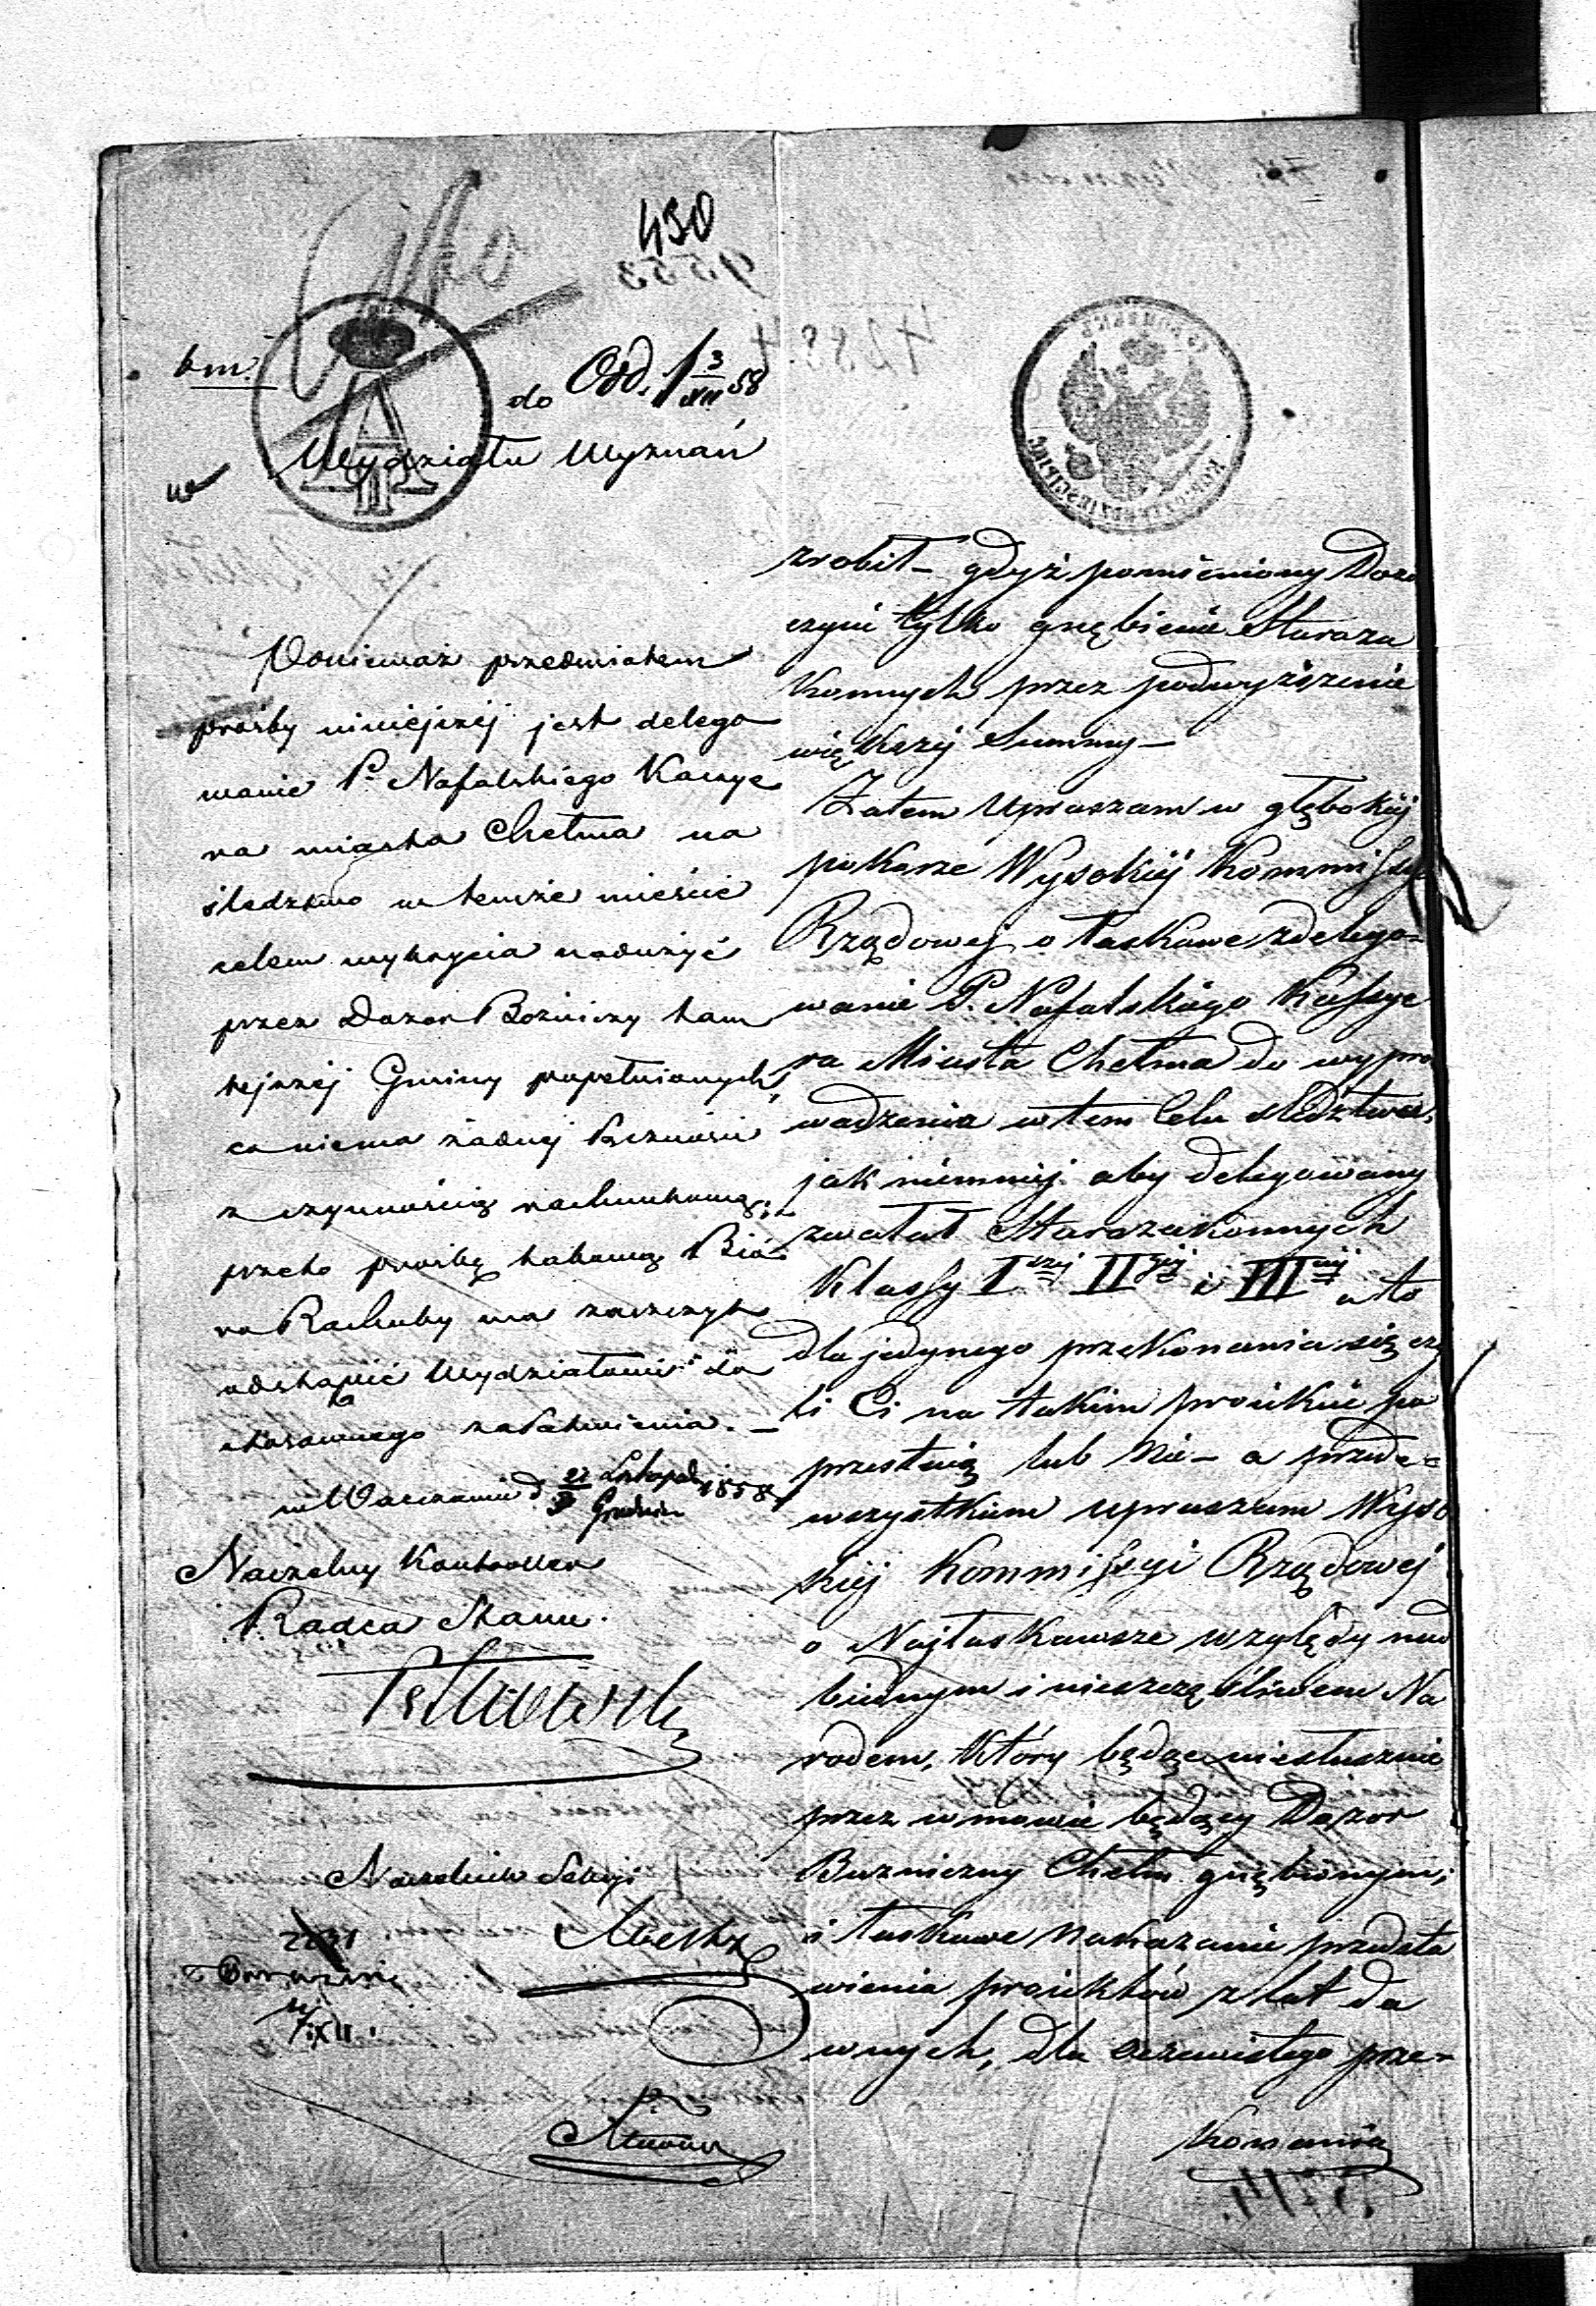 430
do Odd. 1 3/XII 58
Wydziału Wyznań
Ponieważ przedmiotem
prośby niniejszej jest delego
wanie P. Nafalskiego Kassye
ra miasta Chełma na
śledztwo w temże mieście
celem wykrycia nadużyć
przez Dozór Bóżniczy tam
tejszej Gminy popełnionych,
co niema żadnej styczności
z czynnością rachunkową;
przeto prośbę takową Biu
ro Rachuby ma zaszczyt
odstąpić Wydziałowi do
stosownego załatwienia. —
w Warszawie d. Listopada 1858
Grudnia
Naczelny Kontroller
Radca Stanu.
Naczelnik Sekcyi
zrobił – gdyż pomieniony Dozó
czyni tylko gnębienie Staroza
konnych przez podwyższenie
większej Summy –
Zatem upraszam w głębokiej
pokorze Wysokiej Kommissyi
Rządowej o łaskawe zdelego-
wanie P. Nafalskiego Kassye
ra Miasta Chełma do wypro
wadzenia w tem Celu śledztwa,
jak niemniej aby delegowany
zwołał Starozakonnych
Klassy I szej II giej i III ciej a to
dla jedynego przekonania się czy
li Ci na takim proiekcie po
przestają lub nie – a przede=
wszystkiem upraszam Wyso
kiej Kommissyi Rządowej
o Najłaskawsze względy nad
biednym i nieszczęśliwem Na
rodem, który będąc niesłusznie
przez w mowie będący Dozor
Buzniczny Chełm gnębionym,
i łaskawe nakazanie przedsta
wienia proiektów z lat da
wnych, dla oczewistego prze-
konania